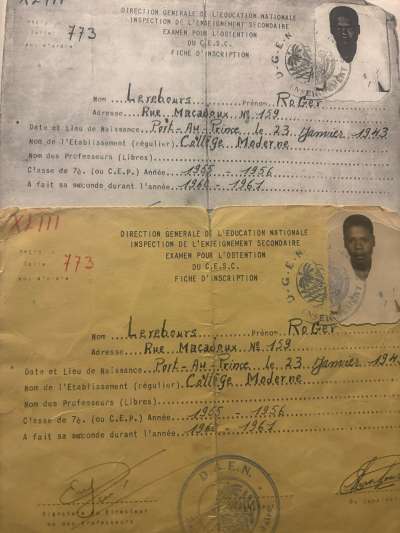 XLIII
DIRECTION GENERALE DE L'EDUCATION NATIONALE
INSPECTION DE L'ENSEIGNEMENT SECONDAIRE
EXAMEN POUR L'OBTENTION
DU C.E.S.C.
FICHE D'INSCRIPTION
Salle
773
U.G.E.N.
Nom Lerebours Prénom RoGer
Adresse Rue Macadoux Nº 159
Date et Lieu de Naissance Port-Au-Prince le 23 Janvier 1943
Nom de l'Etablissement (régulier) Collège Moderne
Nom des Professeurs (Libres)
Classe de 7è. (ou C.E.P.) Année 1955 - 1956
A fait sa seconde durant l'année 1960 - 1961
XLIII
DIRECTION GENERALE DE L'EDUCATION NATIONALE
INSPECTION DE L'ENSEIGNEMENT SECONDAIRE
EXAMEN POUR L'OBTENTION
DU C.E.S.C.
FICHE D'INSCRIPTION
Salle
773
U.G.E.N.
Nom Lerebours Prénom RoGer
Adresse Rue Macadoux Nº 159
Date et Lieu de Naissance Port-Au-Prince le 23 Janvier 194
Nom de l'Etablissement (régulier) Collège Moderne
Nom des Professeurs (Libres)
Classe de 7è. (ou C.E.P.) Année 1955 - 1956
A fait sa seconde durant l'année 1960 - 1961
D.A.E.N.
Signature du Directeur
ou des professeurs